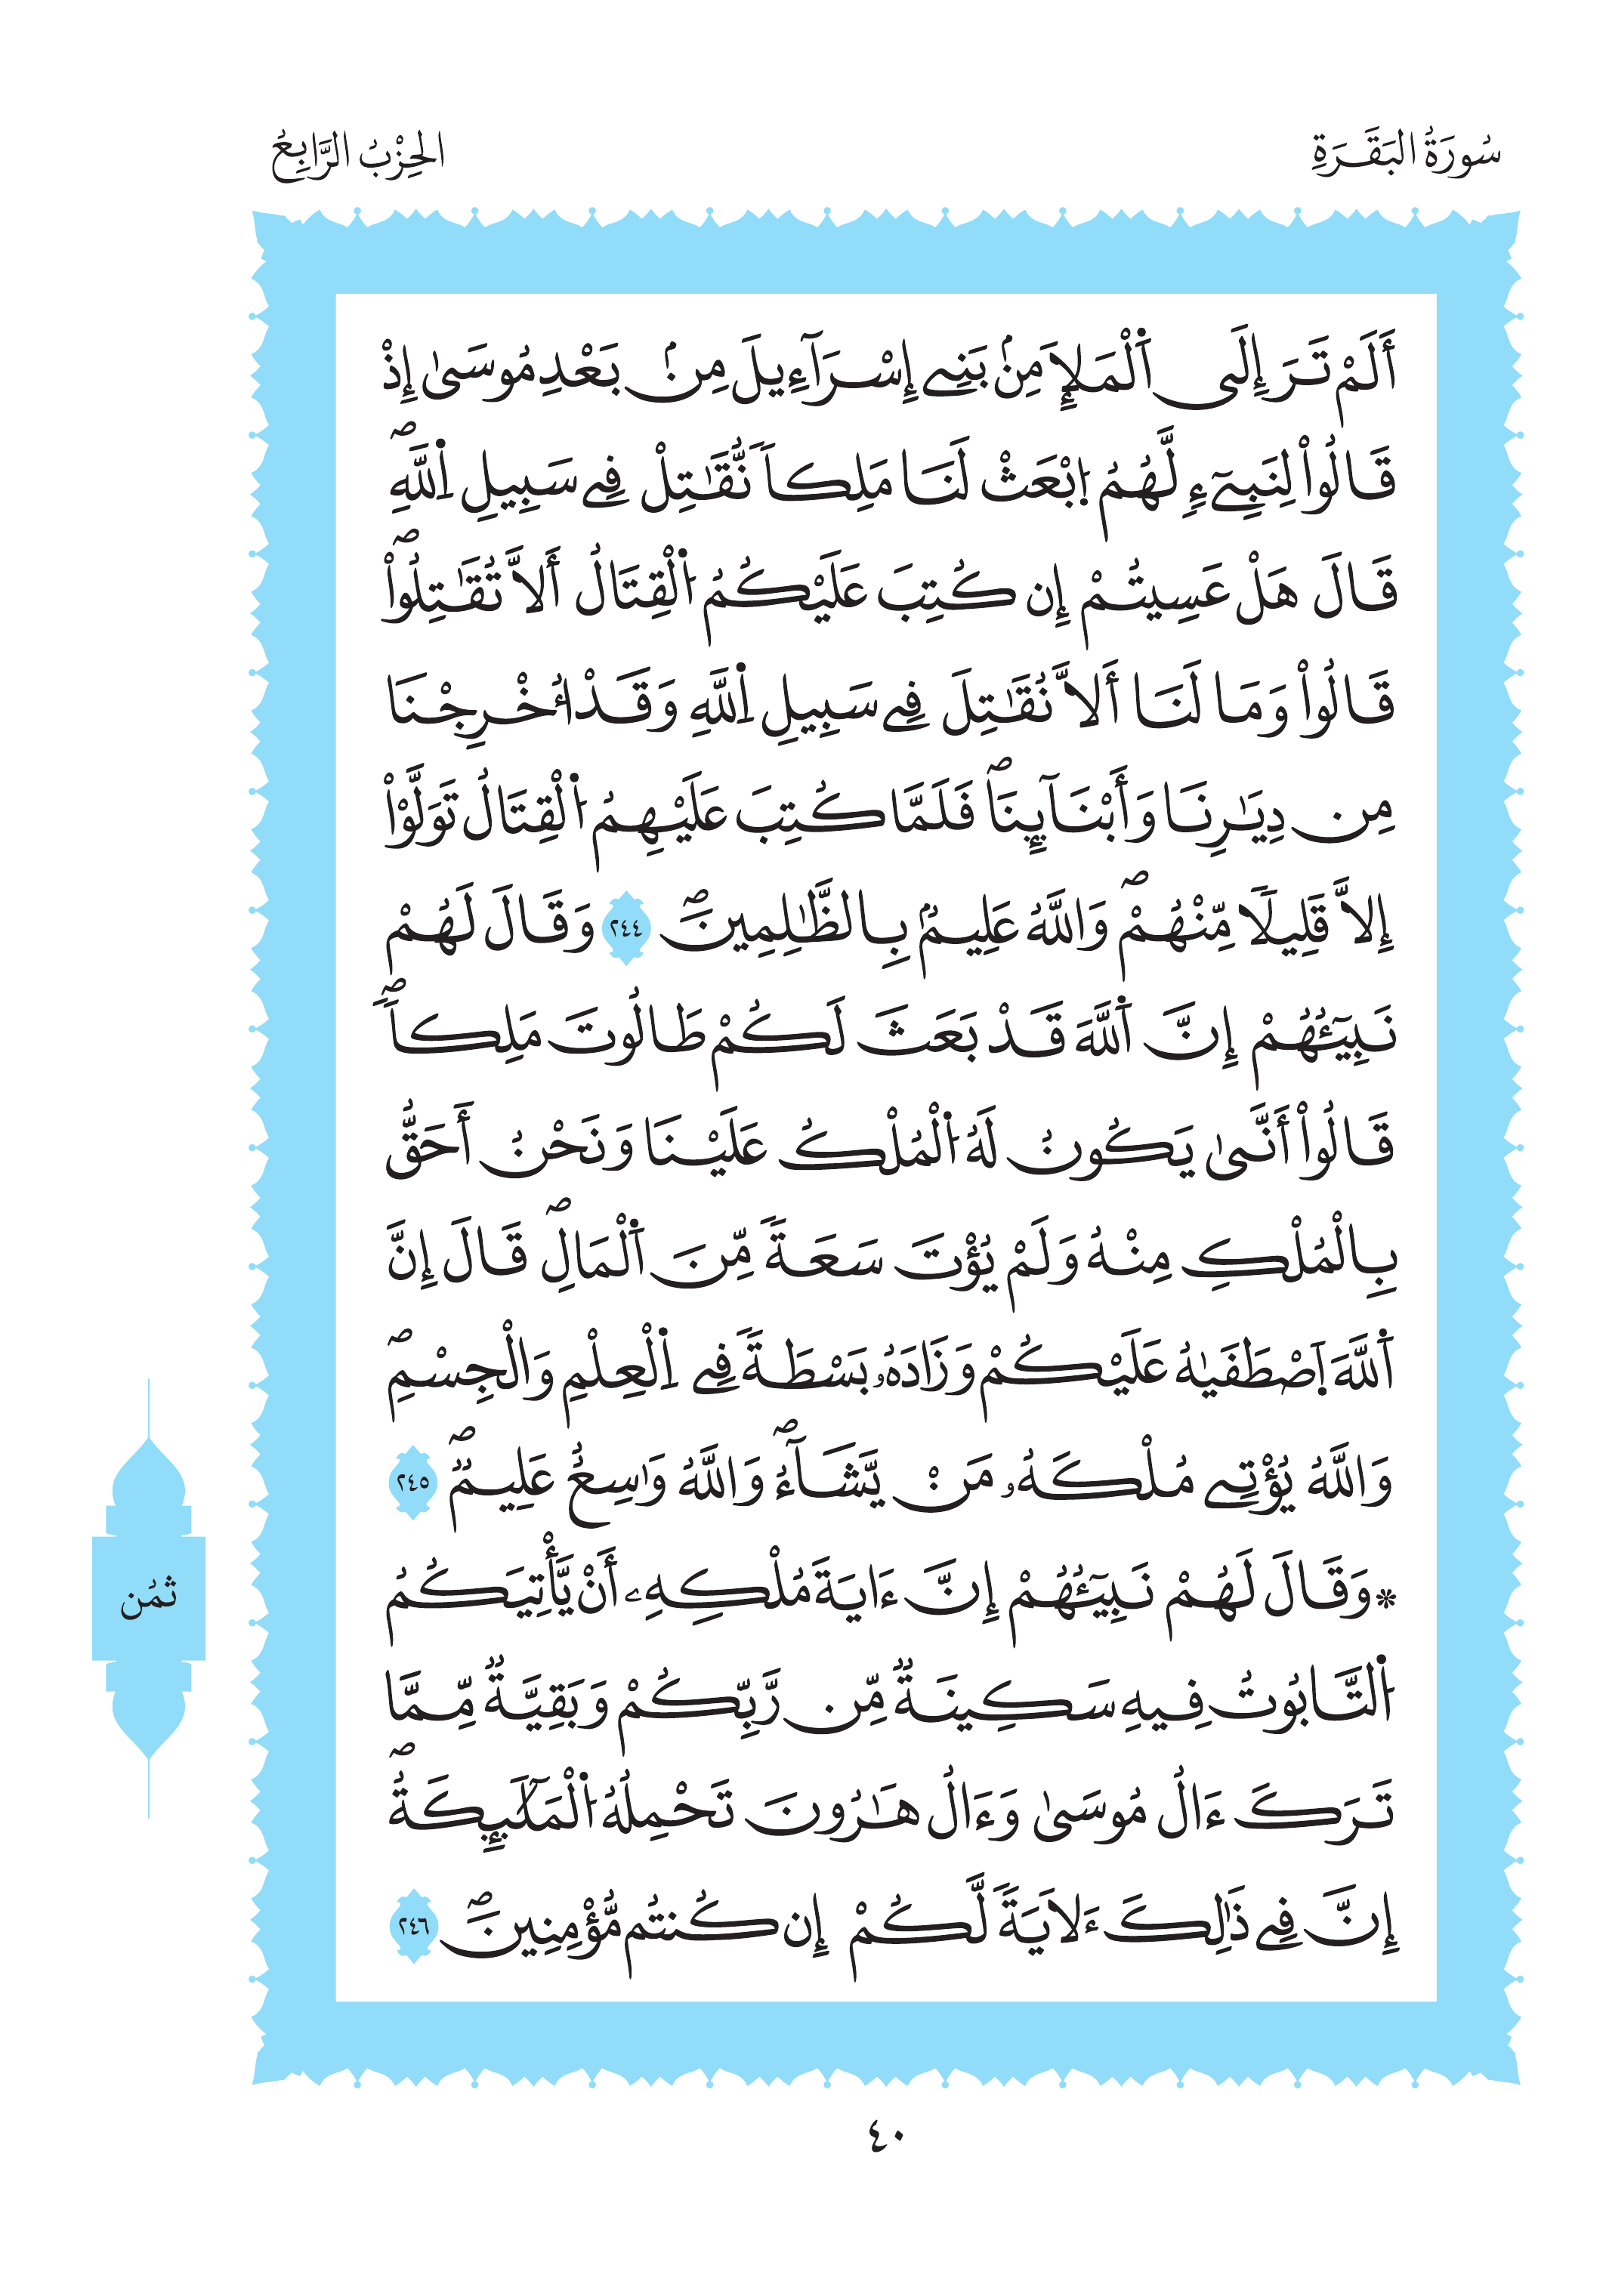 سُورَةُ البَقَرَةِ
الحِزْبُ الرَّابِعُ
أَلَمْ تَرَ إِلَى اَ۬لْمَلَإِ مِنۢ بَنِےٓ إِسْرَآءِيلَ مِنۢ بَعْدِ مُوسَىٰٓ إِذْ
قَالُواْ لِنَبِےٓءٍ لَّهُمُ اُ۪بْعَثْ لَنَا مَلِكاٗ نُّقَٰتِلْ فِے سَبِيلِ اِ۬للَّهِۖ
قَالَ هَلْ عَسِيتُمْ إِن كُتِبَ عَلَيْكُمُ اُ۬لْقِتَالُ أَلَّا تُقَٰتِلُواْۖ
قَالُواْ وَمَا لَنَا أَلَّا نُقَٰتِلَ فِے سَبِيلِ اِ۬للَّهِ وَقَدْ أُخْرِجْنَا
مِن دِيَٰرِنَا وَأَبْنَآئِنَاۖ فَلَمَّا كُتِبَ عَلَيْهِمُ اُ۬لْقِتَالُ تَوَلَّوْاْ
إِلَّا قَلِيلاٗ مِّنْهُمْۖ وَاللَّهُ عَلِيمُۢ بِالظَّٰلِمِينَۖ ٢٤٤ وَقَالَ لَهُمْ
نَبِيٓـُٔهُمْ إِنَّ اَ۬للَّهَ قَدْ بَعَثَ لَكُمْ طَالُوتَ مَلِكاٗۖ
قَالُواْ أَنَّىٰ يَكُونُ لَهُ اُ۬لْمُلْكُ عَلَيْنَا وَنَحْنُ أَحَقُّ
بِالْمُلْكِ مِنْهُ وَلَمْ يُؤْتَ سَعَةٗ مِّنَ اَ۬لْمَالِۖ قَالَ إِنَّ
اَ۬للَّهَ اَ۪صْطَفَيٰهُ عَلَيْكُمْ وَزَادَهُۥ بَسْطَةٗ فِے اِ۬لْعِلْمِ وَالْجِسْمِۖ
وَاللَّهُ يُؤْتِے مُلْكَهُۥ مَنْ يَّشَآءُۖ وَاللَّهُ وَٰسِعٌ عَلِيمٌۖ ٢٤٥
۞وَقَالَ لَهُمْ نَبِيٓـُٔهُمْ إِنَّ ءَايَةَ مُلْكِهِۦ أَنْ يَّأْتِيَكُمُ
اُ۬لتَّابُوتُ فِيهِ سَكِينَةٞ مِّن رَّبِّكُمْ وَبَقِيَّةٞ مِّمَّا
تَرَكَ ءَالُ مُوسَىٰ وَءَالُ هَٰرُونَ تَحْمِلُهُ اُ۬لْمَلَٰٓئِكَةُۖ
إِنَّ فِے ذَٰلِكَ ءَلَايَةٗ لَّكُمْ إِن كُنتُم مُّؤْمِنِينَۖ ٢٤٦
ثمُن
٤٠